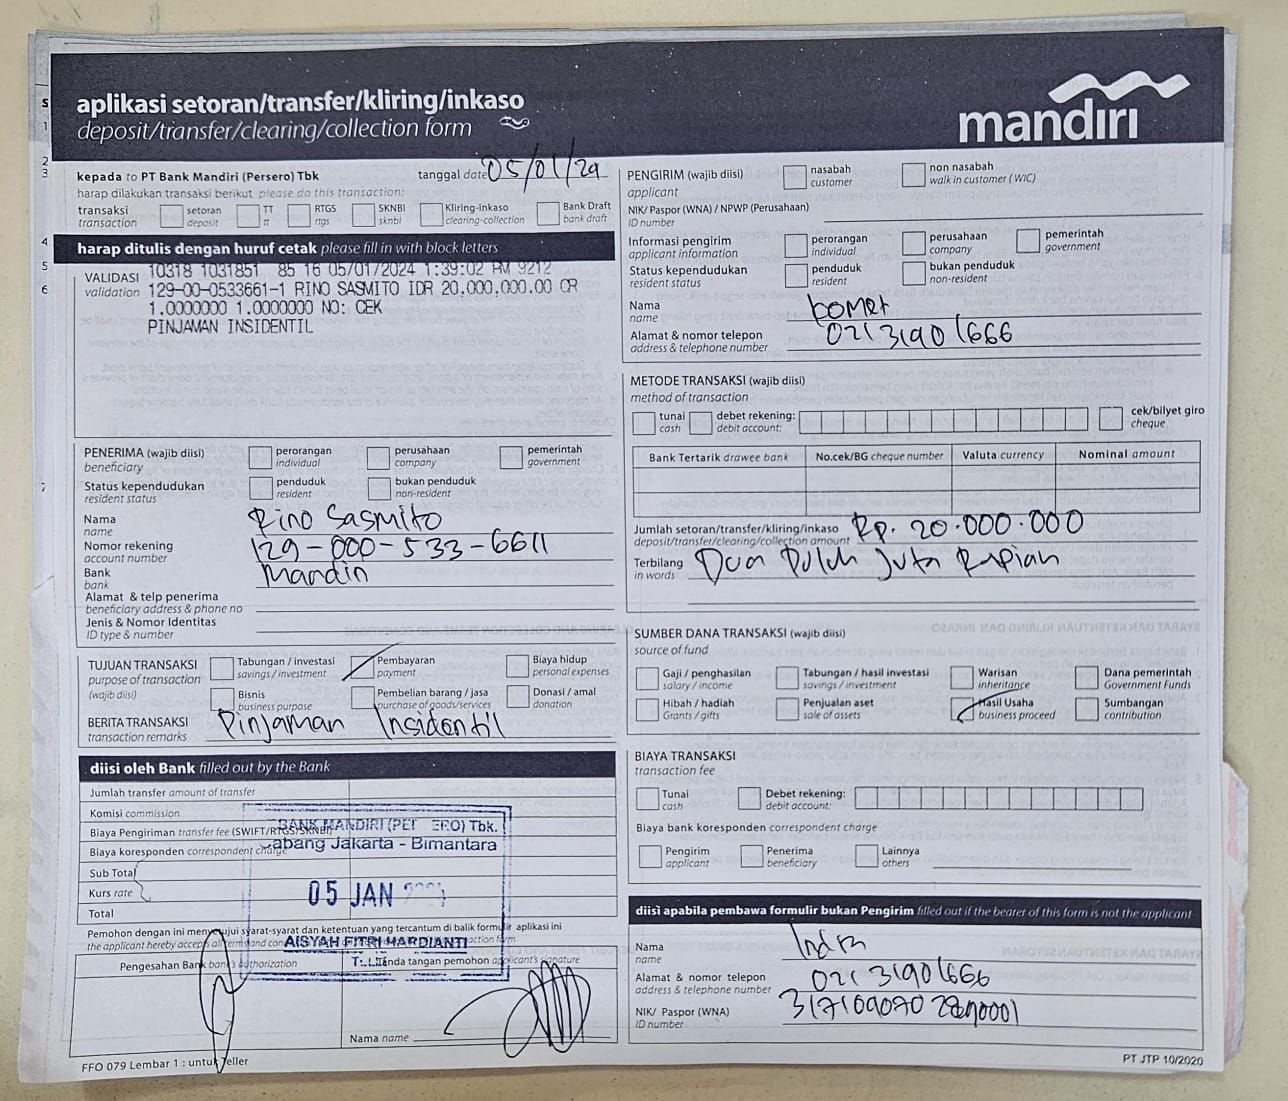 aplikasi setoran/transfer/kliring/inkaso
deposit/transfer/clearing/collection form
mandiri
kepada to PT Bank Mandiri (Persero) Tbk
tanggal date 05/01/24
harap dilakukan transaksi berikut please do this transaction:
transaksi transaction
setoran deposit
TT tt
RTGS rtgs
SKNBI sknbi
Kliring-inkaso clearing-collection
Bank Draft bank draft
harap ditulis dengan huruf cetak please fill in with block letters
VALIDASI validation
10318 1031851 85 16 05/01/2024 1:39:02 PM 9212
129-00-0533661-1 RINO SASMITO IDR 20,000,000.00 CR
1.0000000 1.0000000 NO: CEK
PINJAMAN INSIDENTIL
PENERIMA (wajib diisi) beneficiary
perorangan individual
perusahaan company
pemerintah government
Status kependudukan resident status
penduduk resident
bukan penduduk non-resident
Nama name Rino Sasmito
Nomor rekening account number 129-000-533-6611
Bank bank Mandiri
Alamat & telp penerima
beneficiary address & phone no
Jenis & Nomor Identitas
ID type & number
TUJUAN TRANSAKSI purpose of transaction (wajib diisi)
Tabungan / investasi savings / investment
Pembayaran payment
Biaya hidup personal expenses
Bisnis business purpose
Pembelian barang / jasa purchase of goods/services
Donasi / amal donation
BERITA TRANSAKSI transaction remarks Pinjaman Insidentil
diisi oleh Bank filled out by the Bank
Jumlah transfer amount of transfer
Komisi commission
Biaya Pengiriman transfer fee (SWIFT/RTGS/SKNBI)
Biaya koresponden correspondent charge
Sub Total
Kurs rate
Total
BANK MANDIRI (PERSERO) Tbk.
Cabang Jakarta - Bimantara
05 JAN
AISYAH FITRI MARDIANTI
Pemohon dengan ini menyetujui syarat-syarat dan ketentuan yang tercantum di balik formulir aplikasi ini
the applicant hereby accepts all terms and con action form
Pengesahan Bank bank's authorization
Tanda tangan pemohon applicant's signature
Nama name
FFO 079 Lembar 1 : untuk Teller
PENGIRIM (wajib diisi) applicant
nasabah customer
non nasabah walk in customer (WIC)
NIK/ Paspor (WNA) / NPWP (Perusahaan)
ID number
Informasi pengirim applicant information
perorangan individual
perusahaan company
pemerintah government
Status kependudukan resident status
penduduk resident
bukan penduduk non-resident
Nama name komet
Alamat & nomor telepon address & telephone number 021 3190 1666
METODE TRANSAKSI (wajib diisi)
method of transaction
tunai cash
debet rekening: debit account:
cek/bilyet giro cheque
Bank Tertarik drawee bank
No.cek/BG cheque number
Valuta currency
Nominal amount
Jumlah setoran/transfer/kliring/inkaso
deposit/transfer/clearing/collection amount Rp. 20.000.000
Terbilang in words Dua Puluh Juta Rupiah
SUMBER DANA TRANSAKSI (wajib diisi)
source of fund
Gaji / penghasilan salary / income
Tabungan / hasil investasi savings / investment
Warisan inheritance
Dana pemerintah Government Funds
Hibah / hadiah Grants / gifts
Penjualan aset sale of assets
Hasil Usaha business proceed
Sumbangan contribution
BIAYA TRANSAKSI
transaction fee
Tunai cash
Debet rekening: debit account:
Biaya bank koresponden correspondent charge
Pengirim applicant
Penerima beneficiary
Lainnya others
diisi apabila pembawa formulir bukan Pengirim filled out if the bearer of this form is not the applicant
Nama name Indra
Alamat & nomor telepon address & telephone number 021 31901666
NIK/ Paspor (WNA) ID number
PT JTP 10/2020